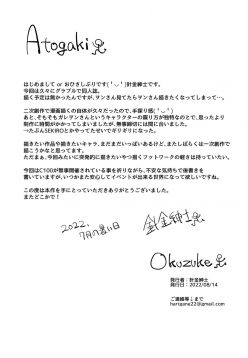 Atogaki
はじめまして or おひさしぶりです('◡')針金紳士です。
今回は久々にグラブルで同人誌。
描く予定は無かったんですが、ヲンさん見てたらヲンさん描きたくなってしまって…。
二次創作で漫画描くの自体が久々だったので、手探り感('◡')
あと、そもそもガレヲンさんというキャラクターの喋り方が独特なので、思ったより
制作に時間がかかってしまいましたが、無事締切には間に合いました。
→たぶんSEKIROとかやってたせいでギリギリになった。
描きたい作品や描きたいキャラ、まだまだいっぱいあるけど、またしばらくは一次創作で
描こうかなと思ってます。
たまぁに、今回みたいに突発的に描きたいやつ描くフットワークの軽さは持っていたい。
今回はC100が無事開催されている事を祈りながら、不安な気持ちで後書きを
書いていますが、いつかまた安心してイベントが出来る世界になって欲しいですね。
この度は本作を手にとっていただきありがとうございました。
またどこかで！
2022.
7月の暑い日
針金紳士
Okuzuke
発行者：針金紳士
発行日：2022/08/14
ご連絡等↓まで
harigane22@gmail.com